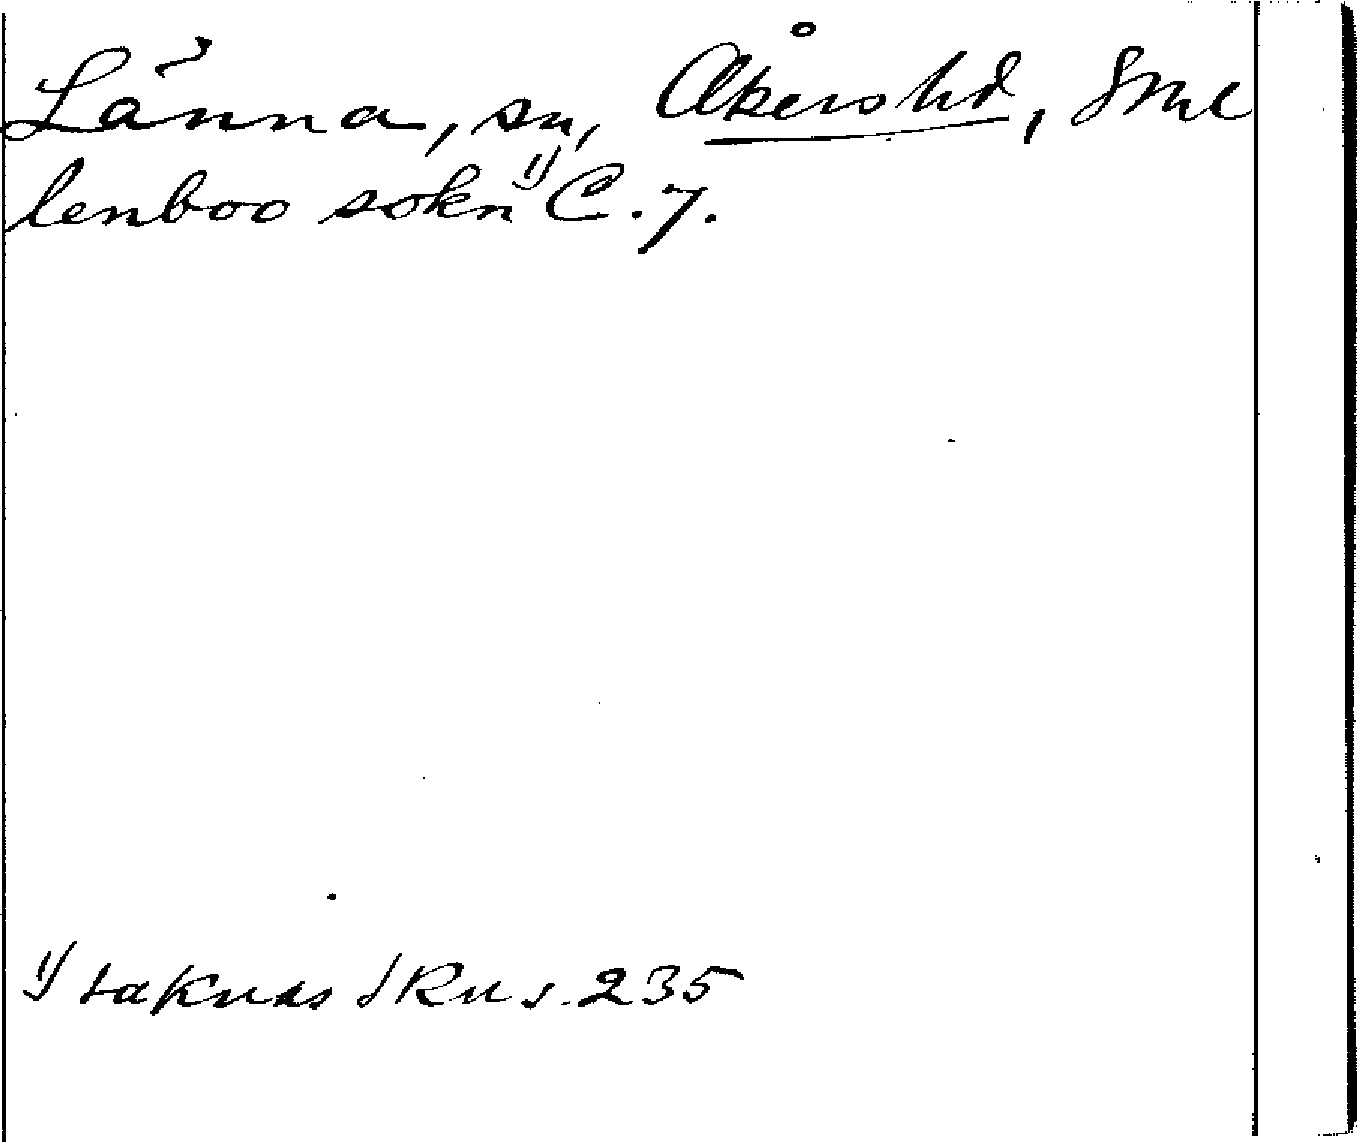 Länna, sn, Åkers hd, Sml
lenboo sokn 1) C. 7.
1) saknas i Rn s. 235